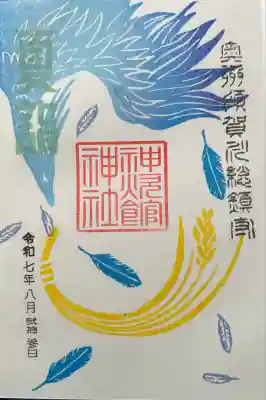 奥州須賀川総鎮守
神炊館
神社
令和七年八月弐拾参日